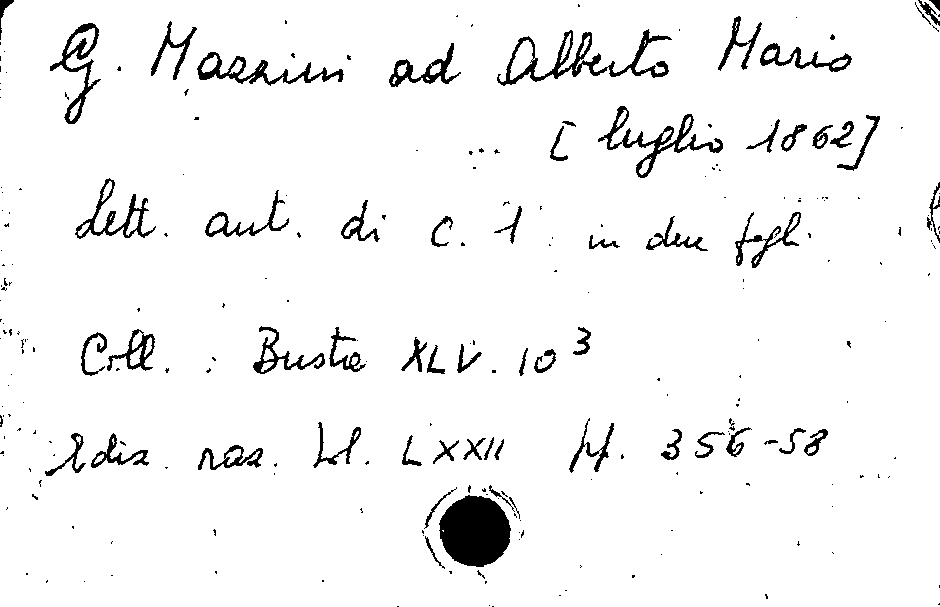 G. Mazzini ad Alberto Mario
... [luglio 1862]
Lett. aut. di c. 1 in due fogli.
Coll. : Busta XLV. 10³
Ediz. naz. Vol. LXXII pp. 356-58